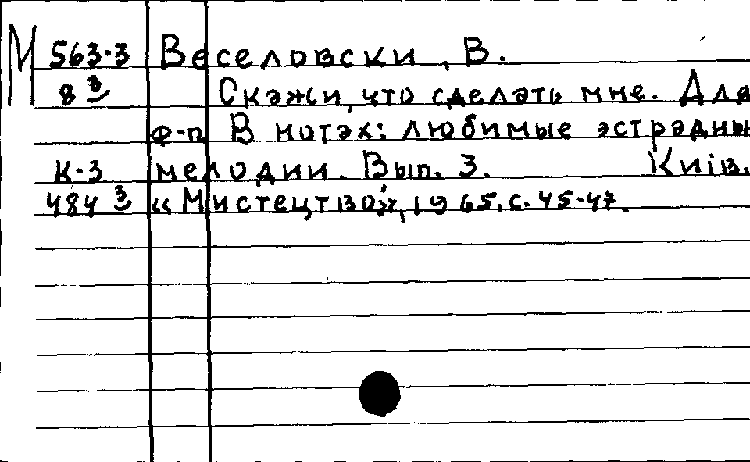 М 563-3 Веселовски, В.
8 3 Скажи, что сделать мне. Для
ф-п В нотах: любимые эстрадны
К-3 мелодии. Вып. 3. Київ.
484 3 «Мистецтво», 1965, с. 45-47.